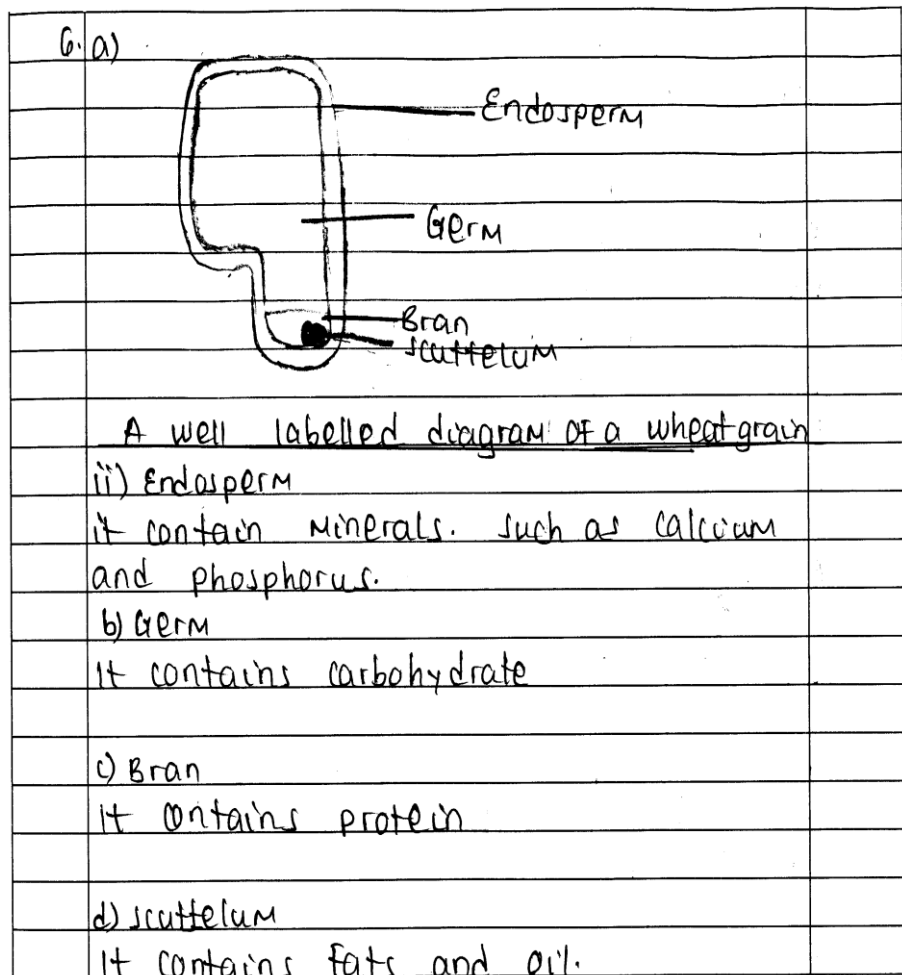 6. a)
Endosperm
Germ
Bran
scuttelum
A well labelled diagram of a wheat grain
ii) Endosperm
it contain minerals. such as calcium
and phosphorus.
b) Germ
It contains carbohydrate
c) Bran
It contains protein
d) scuttelum
It contains fats and oil.